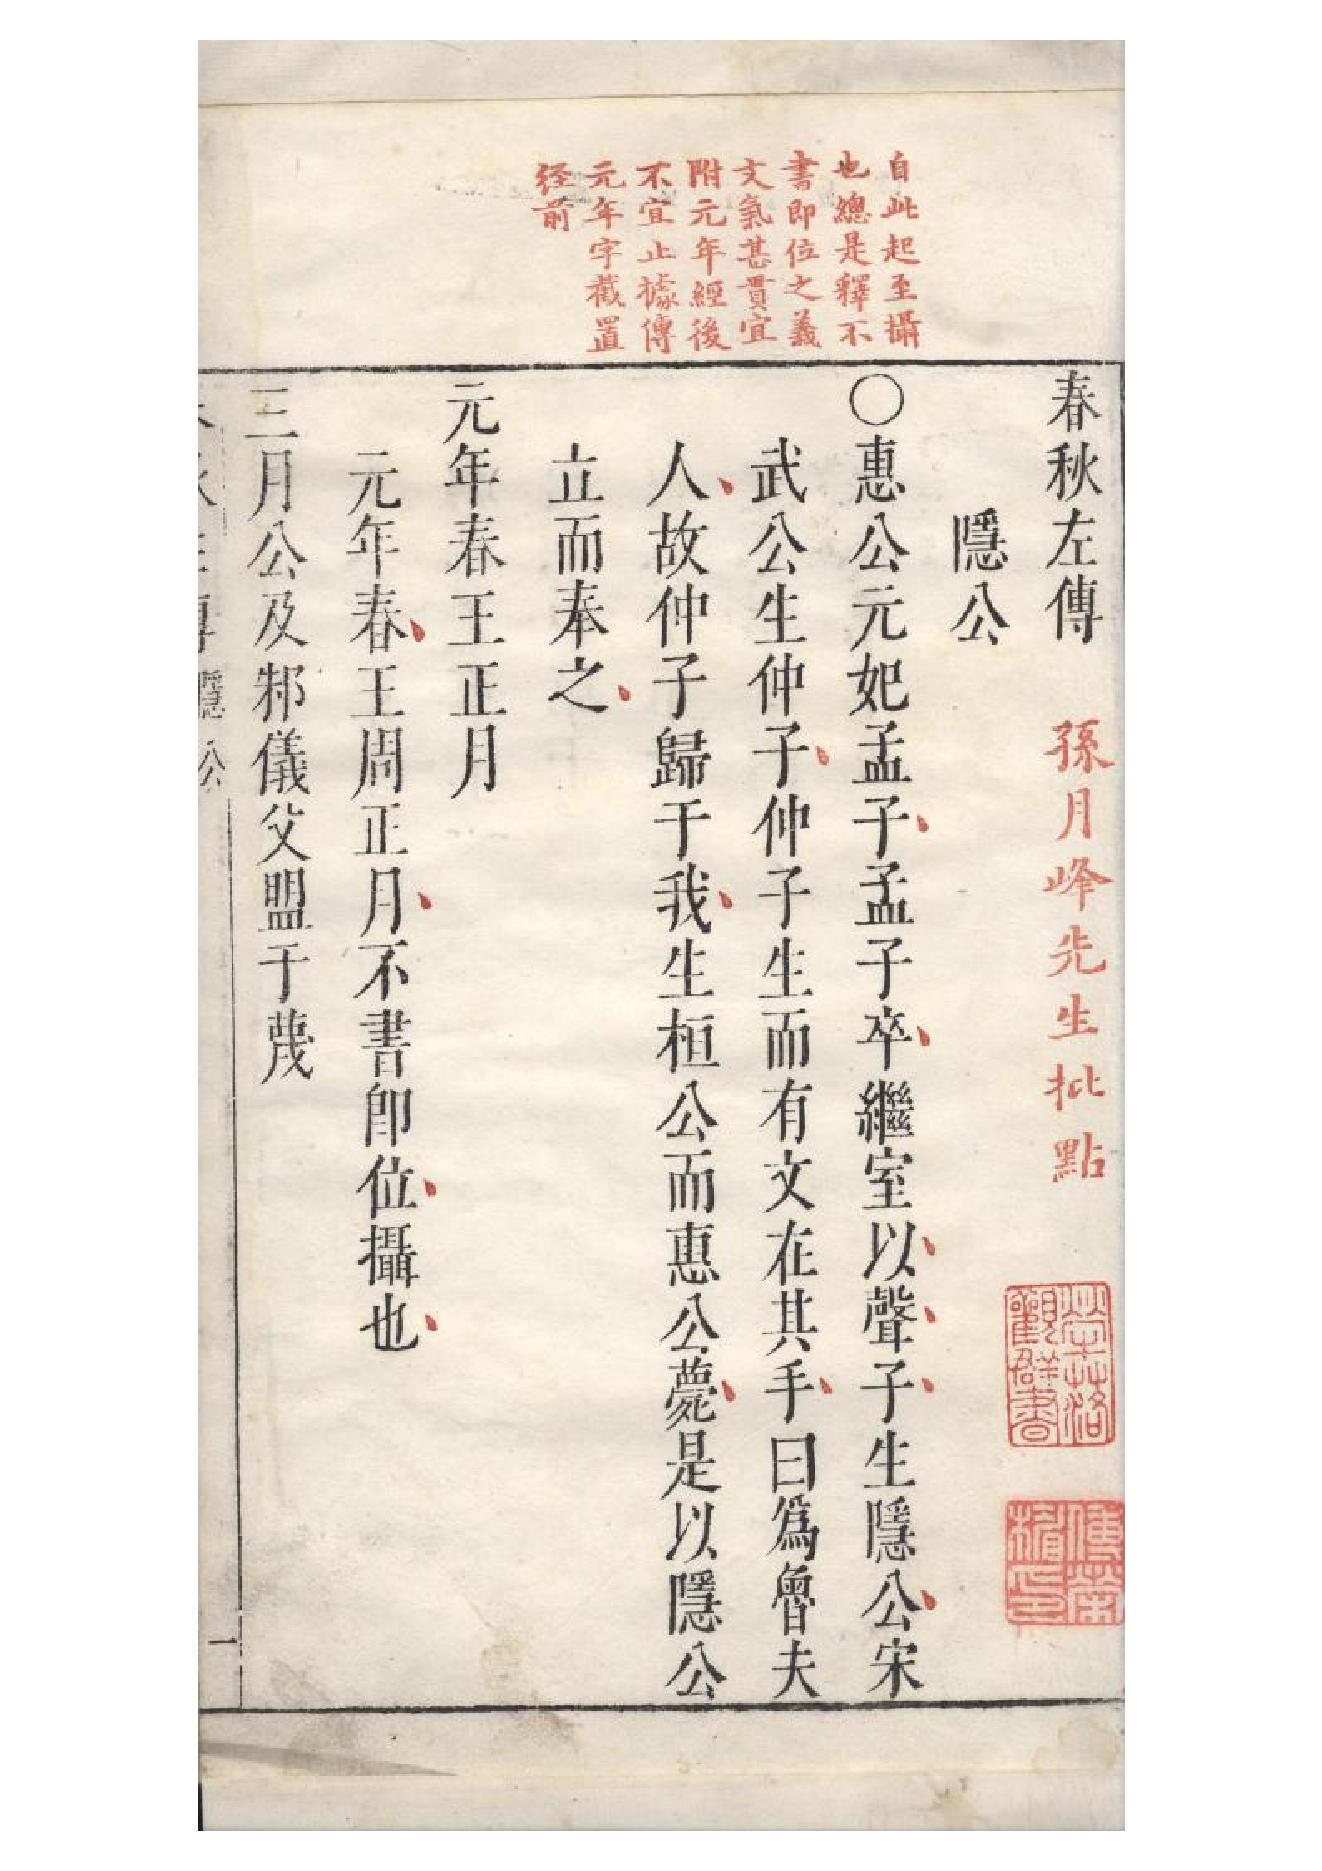 自此起至攝
也總是釋不
書即位之義
文氣甚貫宜
附元年經後
不宜止據傳
元年字截置
经前
春秋左傳 孫月峰先生批點
隱公
〇惠公元妃孟子孟子卒繼室以聲子生隱公宋
武公生仲子仲子生而有文在其手曰爲魯夫
人故仲子歸于我生桓公而惠公薨是以隱公
立而奉之
元年春王正月
元年春王周正月不書卽位攝也
三月公及邾儀父盟于蔑
隱公
一